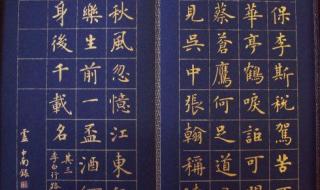 保李斯稅駕苦
華亭鶴唳詎可
蔡蒼鷹何足道
見吳中張翰稱
秋風忽憶江東
樂生前一盃酒
身後千載名
李白行路
其三
盧中南錄